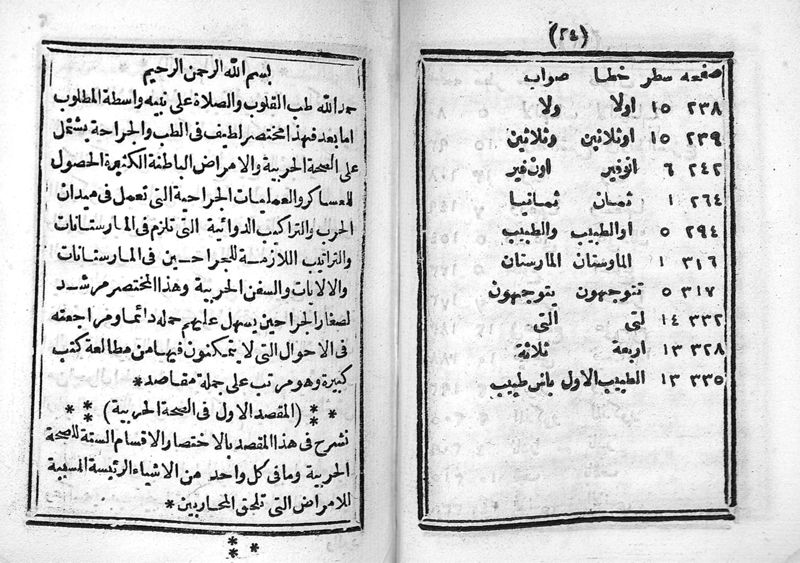 (٢٤)
صفحه سطر خطا صواب
٢٣٨ ١٥ اولا ولا
٢٣٩ ١٥ اوثلاثين وثلاثين
٢٤٢ ٦ انوفير اونفير
٢٦٤ ١ ثمان ثمانيا
٢٩٤ ٥ اوالطبيب والطبيب
٣١٦ ١ الماوستان المارستان
٣١٧ ٥ تتوجهون يتوجهون
٣٣٢ ١٤ لتى التى
٣٢٨ ١٣ اربعة ثلاثة
٣٣٥ ١٣ الطبيب الاول باش طبيب
بسم الله الرحمن الرحيم
حمد الله طب القلوب والصلاة على نبيه واسطة المطلوب
اما بعد فهذا مختصر لطيف فى الطب والجراحة يشتمل
على الصحة الحربية والامراض الباطنة الكثيرة الحصول
للعساكر والعمليات الجراحية التى تعمل فى ميدان
الحرب والتراكيب الدوائية التى تلزم فى المارستانات
والتراتيب اللازمة للجراحين فى المارستانات
والالايات والسفن الحربية وهذا المختصر مرشد
لصغار الجراحين يسهل عليهم حمله دائما ومراجعته
فى الاحوال التى لا يتمكنون فيها من مطالعة كتب
كبيرة وهو مرتب على جملة مقاصد *
* * * (المقصد الاول فى الصحة الحربية) * * *
نشرح فى هذا المقصد بالاختصار الاقسام الستة للصحة
الحربية وما فى كل واحد من الاشياء الرئيسة المسببة
للامراض التى تلحق المحاربين *
* * *